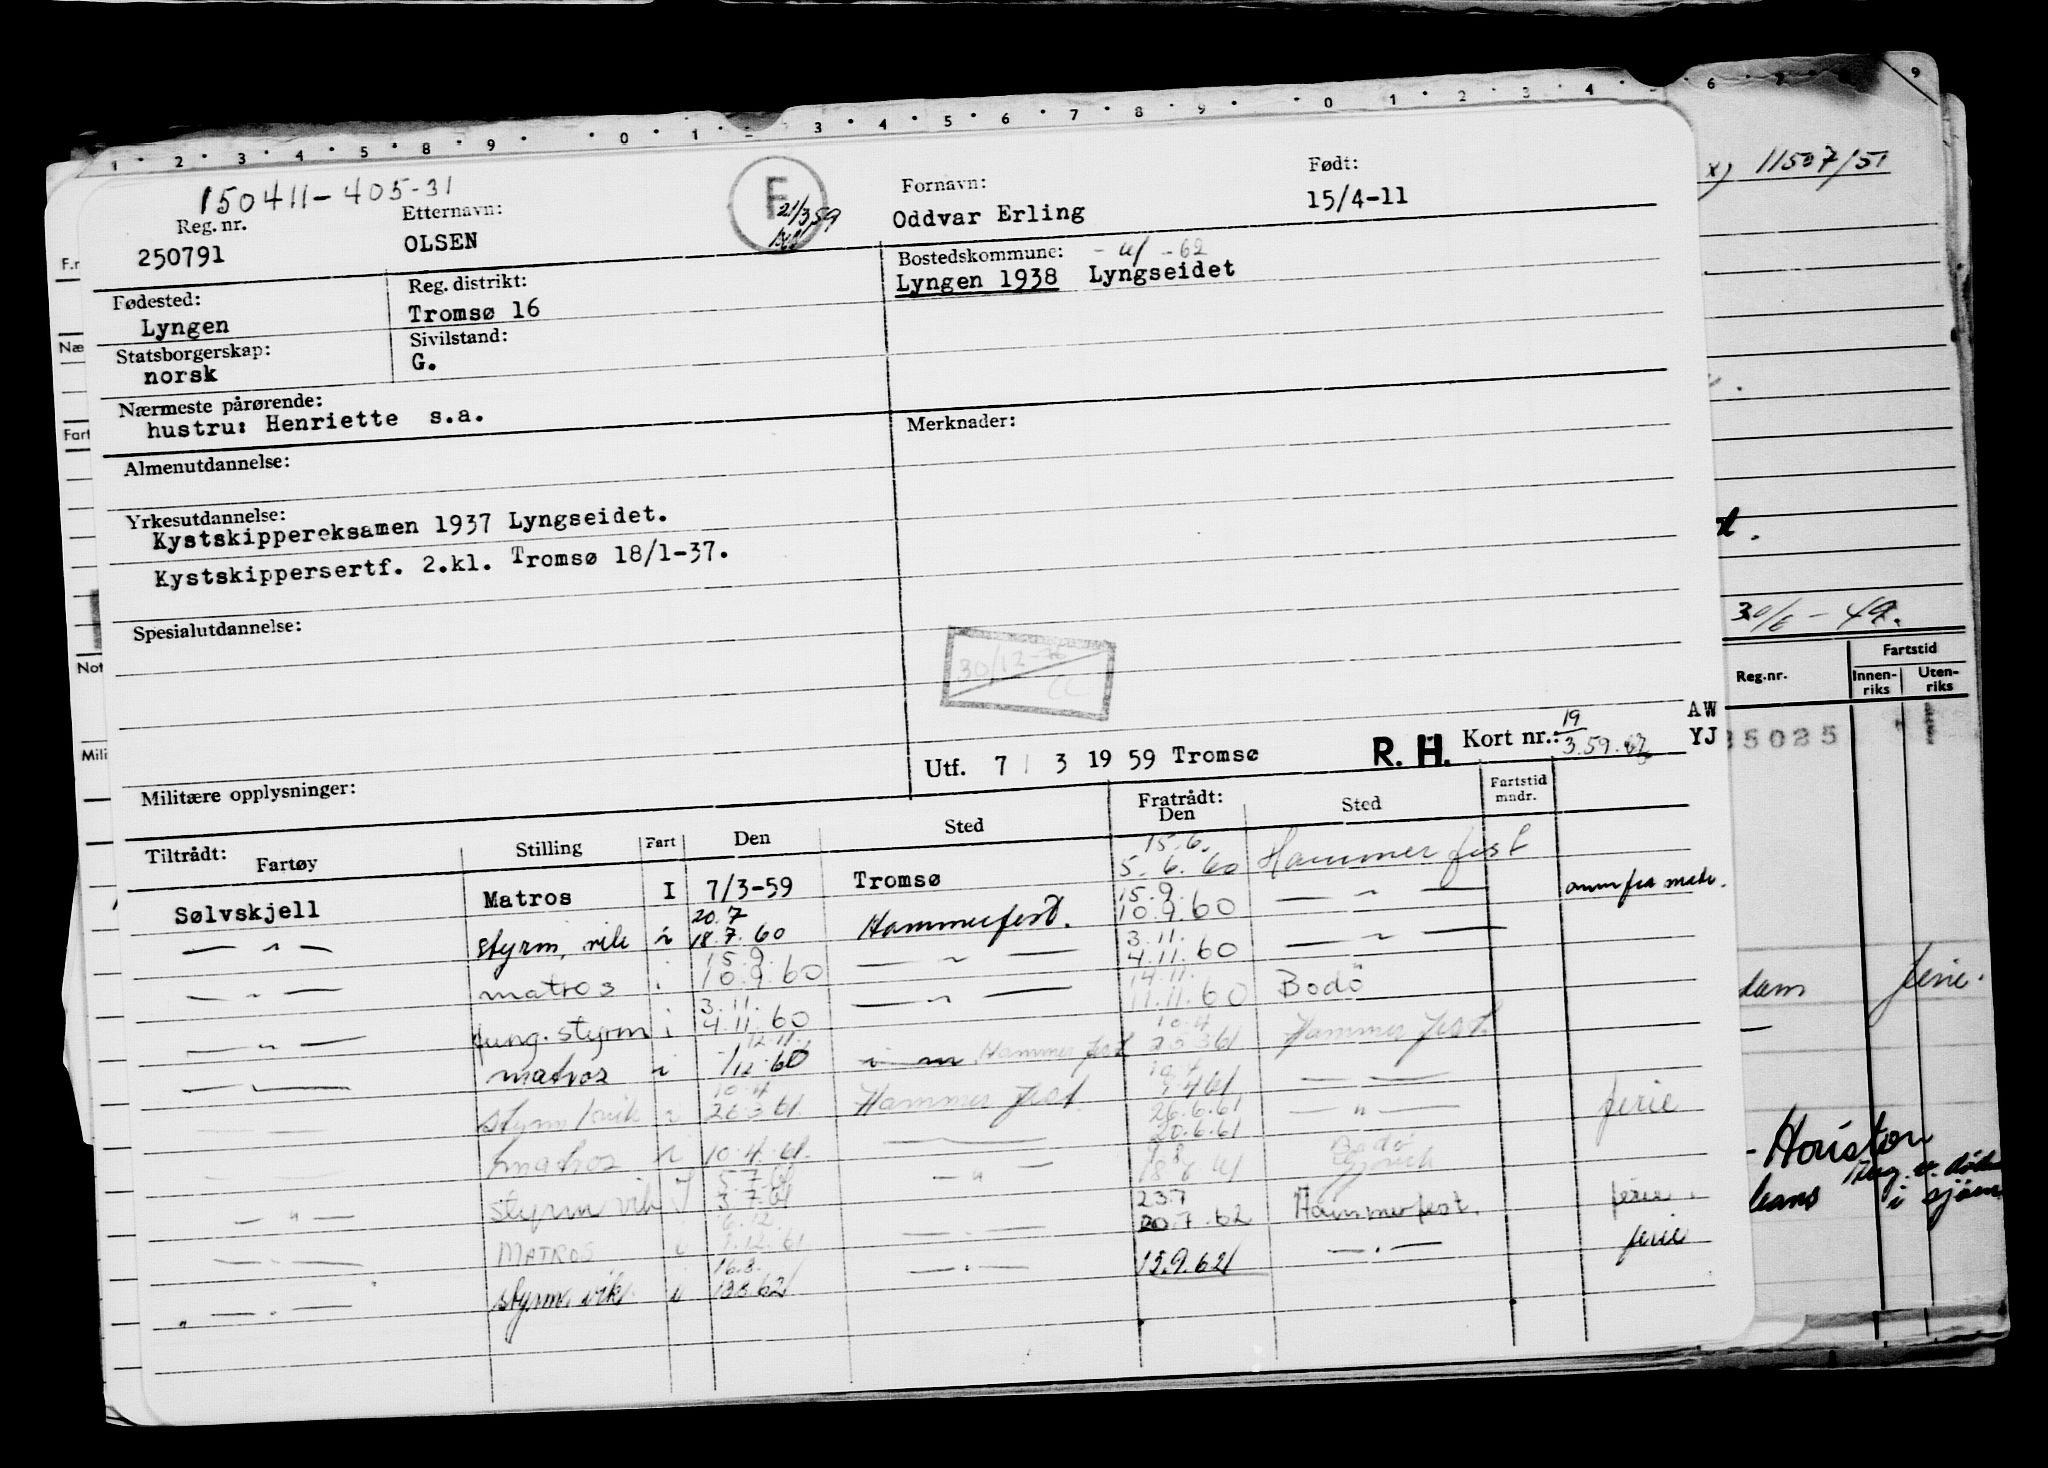 1 2 3 4 5 8 9 0 1 3 4 5 6 7 8 9 0 1 2 3 4 6 9
150411-405-31
Reg. nr.
250791
Etternavn:
OLSEN
F
21/3 59
Fornavn:
Oddvar Erling
Født:
15/4-11
x) 11507/51
Fødested:
Lyngen
Reg. distrikt:
Tromsø 16
Bostedskommune:
-62
Lyngen 1938 Lyngseidet
Statsborgerskap:
norsk
Sivilstand:
G.
Nærmeste pårørende:
hustru: Henriette s.a.
Merknader:
Almenutdannelse:
Yrkesutdannelse:
Kystskippereksamen 1937 Lyngseidet.
Kystskippersertf. 2.kl. Tromsø 18/1-37.
Spesialutdannelse:
30/12-76
CC
30/6-49.
Fartstid
Reg.nr. Innen-riks Uten-riks
Utf. 7 / 3 19 59 Tromsø R. H. Kort nr.: 19
3.59.62
AW
YJ
25025
Militære opplysninger:
Tiltrådt:
Fartøy Stilling Fart Den Sted
Fratrådt:
Den Sted Fartstid mndr.
15.6.
Sølvskjell Matros I 7/3-59 Tromsø 5.6.60 Hammerfest
20.7 15.9.
— " — styrm. vik i 18.7.60 Hammerfest. 10.9.60 — " —
15.9. 3.11.
— " — matros i 10.9.60 — " — 4.11.60 — " —
3.11. 14.11.
— " — fung. styrm i 4.11.60 — " — 11.11.60 Bodö
10.4
matros i 1/12.60 Hammerfest Hammerfest.
10.4
styrm vik i 26.3 61. Hammerfest. 1.4 61
26.6.61 — " — ferie
matros i 10.4.61. 20.6.61
5.7.61 Bodö
— " — styrm vik I 3.7.61 — " —
6.12. 23.7
MATROS i 1.12.61 20.7.62 Hammerfest. ferie.
16.3.
" — " — styrm. vik. i 13362 — " — 13.9.62 — " — ferie
ferie.
Houston
i sjøm